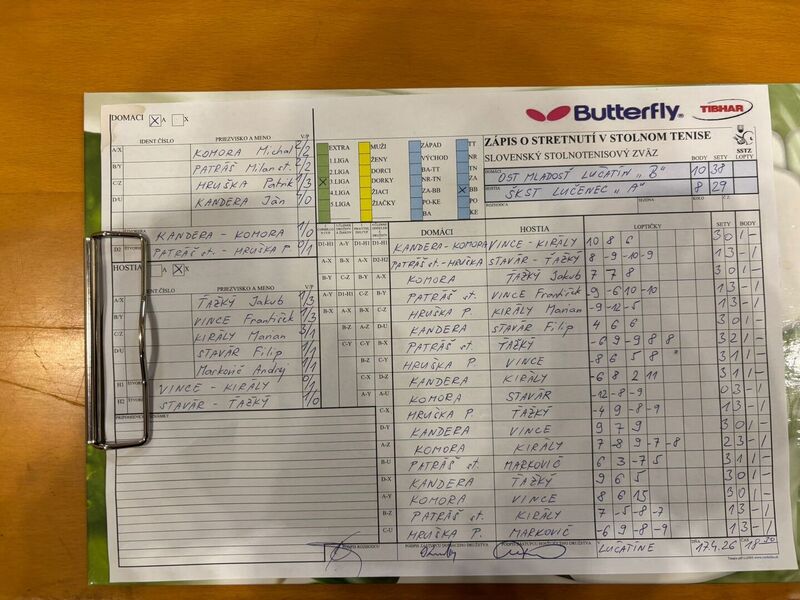 Butterfly TIBHAR
DOMÁCI A X
IDENT ČÍSLO PRIEZVISKO A MENO V/P
A/X KOMORA Michal 2/2
B/Y PATRÁŠ Milan st. 2/2
C/Z HRUŠKA Patrik 1/3
D/U KANDERA Ján
KANDERA - KOMORA 1/0
D2 PATRÁŠ st. - HRUŠKA P. 0/1
HOSTIA A X
IDENT ČÍSLO PRIEZVISKO A MENO V/P
A/X ŤAŽKÝ Jakub 1/3
B/Y VINCE František 1/3
C/Z KIRÁLY Marian 3/1
D/U STAVÁR Filip 1/1
Markovič Andrej 1/1
H1 VINCE - KIRÁLY 0/1
H2 STAVÁR - ŤAŽKÝ 1/0
EXTRA MUŽI ZÁPAD TT
1.LIGA ŽENY VÝCHOD NR
2.LIGA DORCI BA-TT TN
3.LIGA DORKY NR-TN ZA
4.LIGA ŽIACI ZA-BB BB
5.LIGA ŽIAČKY PO-KE PO
BA KE
ZÁPIS O STRETNUTÍ V STOLNOM TENISE
SLOVENSKÝ STOLNOTENISOVÝ ZVÄZ
SSTZ
BODY SETY LOPTY
DOMÁCI OŠT MLADOSŤ LUČATÍN "B" 10 38
HOSTIA ŠKST LUČENEC "A" 8 29
ROZHODCA KOLO
DOMÁCI HOSTIA LOPTIČKY SETY BODY
KANDERA-KOMORA VINCE - KIRÁLY 10 8 6 3 0 1 -
PATRÁŠ st.-HRUŠKA STAVÁR - ŤAŽKÝ 8 -9 -10 -9 1 3 - 1
KOMORA ŤAŽKÝ Jakub 7 7 8 3 0 1 -
PATRÁŠ st. VINCE František -9 -6 10 -10 1 3 - 1
HRUŠKA P. KIRÁLY Marian
KANDERA STAVÁR Filip 4 6 6 3 0 1 -
PATRÁŠ st. ŤAŽKÝ -6 9 -9 8 8 3 2 1 -
HRUŠKA P. VINCE -8 6 5 8 3 1 1 -
KANDERA KIRÁLY -6 8 2 11 3 1 1 -
KOMORA STAVÁR -12 -8 -9 0 3 - 1
HRUŠKA P. ŤAŽKÝ -4 9 -8 -9 1 3 - 1
KANDERA VINCE 9 7 9 3 0 1 -
KOMORA KIRÁLY 7 -8 9 -7 -8 2 3 - 1
PATRÁŠ st. MARKOVIČ 6 3 -7 5 3 1 1 -
KANDERA ŤAŽKÝ 9 6 5 3 0 1 -
KOMORA VINCE 8 6 15 3 0 1 -
PATRÁŠ st. KIRÁLY 7 -5 -8 -7 1 3 - 1
HRUŠKA P. MARKOVIČ -6 9 -8 -9 1 3 - 1
PODPIS ROZHODCU PODPIS ZÁSTUPCU DOMÁCEHO DRUŽSTVA PODPIS ZÁSTUPCU HOSŤUJÚCEHO DRUŽSTVA
V LUČATÍNE DŇA 17.4.26 ČAS